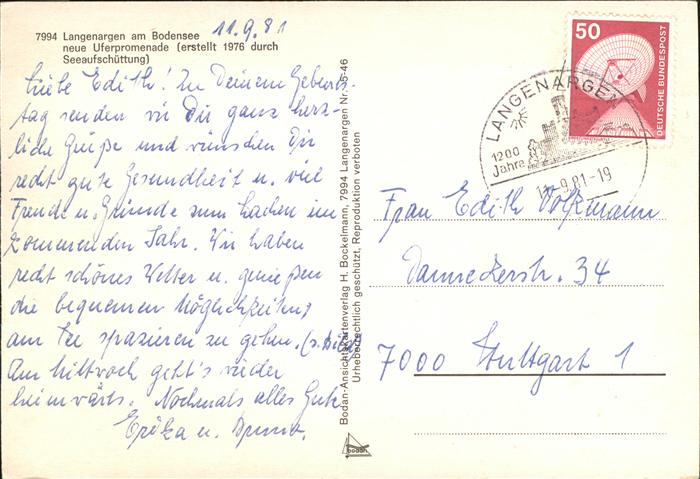 7994 Langenargen am Bodensee
neue Uferpromenade (erstellt 1976 durch
Seeaufschüttung)
11.9.81
Liebe Edith! Zu Deinem Geburts-
tag senden wir Dir ganz herz-
liche Grüße und wünschen Dir
recht gute Gesundheit u. viel
Freude u. Gründe zum Lachen im
kommenden Jahr. Wir haben
recht schönes Wetter u. genießen
die bequemen Möglichkeiten,
am See spazieren zu gehen. (s. Bild)
Am Mittwoch geht's wieder
heimwärts. Nochmals alles Gute
Erika u. Bruno.
Bodan-Ansichtskartenverlag H. Bockelmann, 7994 Langenargen Nr. 15-46
Urheberrechtlich geschützt, Reproduktion verboten
bodan
50
DEUTSCHE BUNDESPOST
LANGENARGEN
1200
Jahre
11.-9.81-19
Frau Edith Volzmann
Danneckerstr. 34
7000 Stuttgart 1